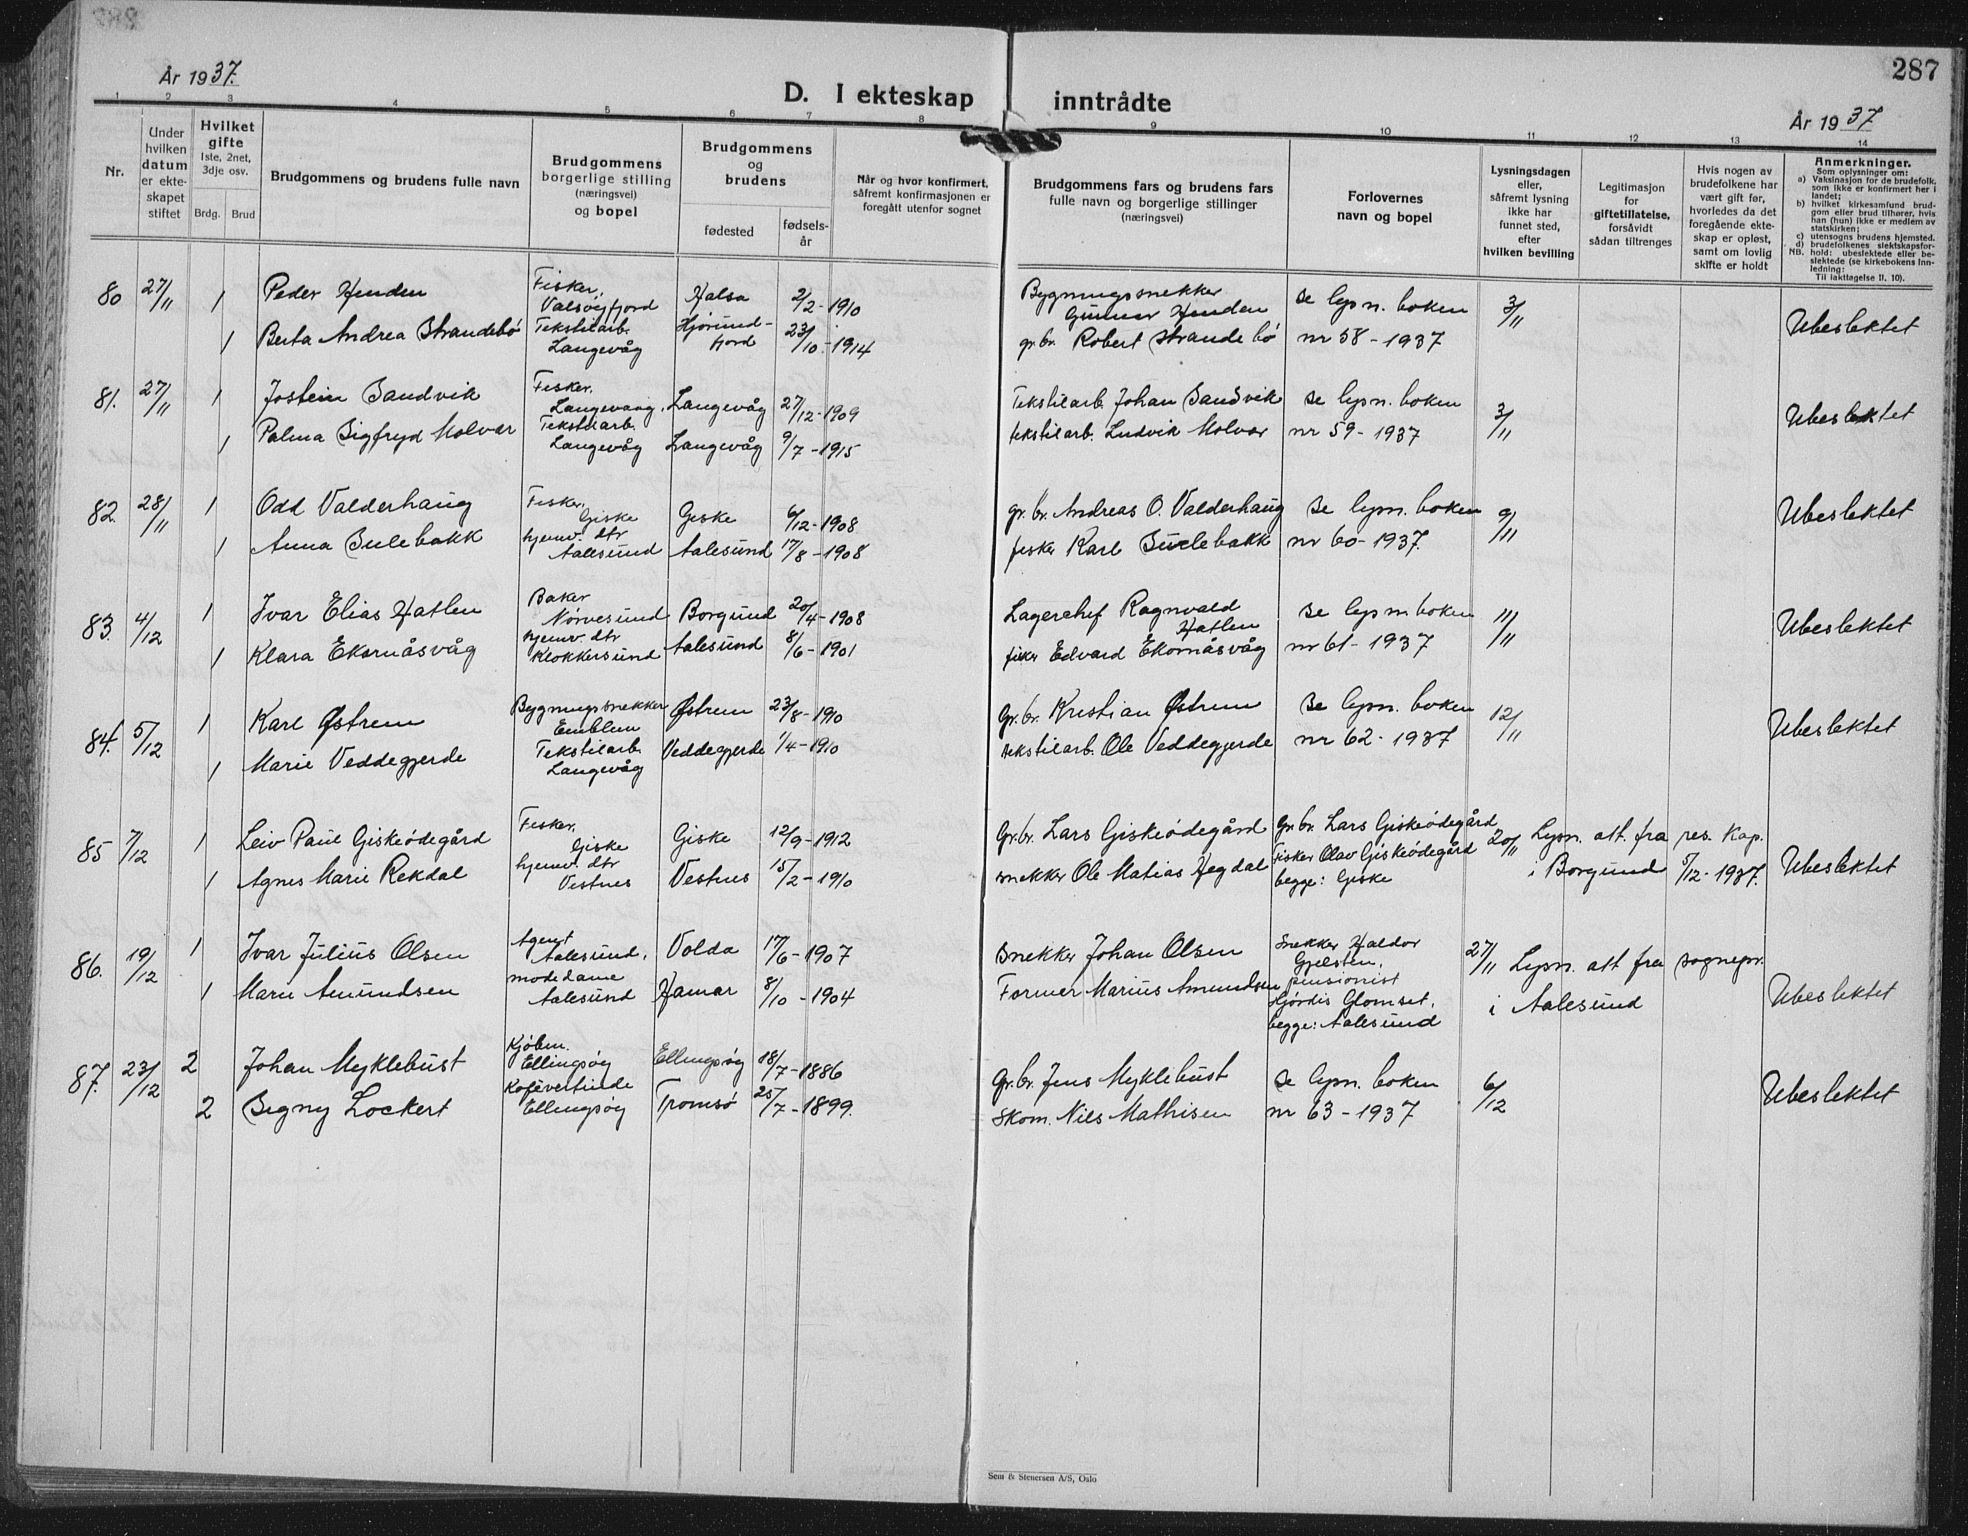 287
År 1937.
D. I ekteskap inntrådte
År 1937
1 2 3 4 5 6 7 8 9 10 11 12 13 14
Nr.
Under hvilken datum er ekte-skapet stiftet
Hvilket gifte
1ste, 2net, 3dje osv.
Brdg. Brud
Brudgommens og brudens fulle navn
Brudgommens borgerlige stilling (næringsvei) og bopel
Brudgommens og brudens
fødested
fødsels-år
Når og hvor konfirmert, såfremt konfirmasjonen er foregått utenfor sognet
Brudgommens fars og brudens fars fulle navn og borgerlige stillinger (næringsvei)
Forlovernes navn og bopel
Lysningsdagen eller, såfremt lysning ikke har funnet sted, efter hvilken bevilling
Legitimasjon for giftetillatelse, forsåvidt sådan tiltrenges
Hvis nogen av brudefolkene har vært gift før, hvorledes da det foregående ekte-skap er opløst, samt om lovlig skifte er holdt
Anmerkninger.
Som oplysninger om:
a) Vaksinasjon for de brudefolk, som ikke er konfirmert her i landet;
b) hvilket kirkesamfund brud-gom eller brud tilhører, hvis han (hun) ikke er medlem av statskirken;
c) utensogns brudens hjemsted.
d) brudefolkenes slektskapsfor-hold: ubeslektede eller be-slektede (se kirkebokens Inn-ledning:
NB.
Til iakttagelse II. 10).
80 27/11 1 Peder Henden Fisker, Valsøyfjord Halsa 2/2-1910 Bygningssnekker Gunnar Henden se lysn. boken 3/11 Ubeslektet
1 Berta Andrea Strandebö Tekstilarb. Langevåg Hjørund-fjord 23/10-1914 gr.br. Robert Strandebö nr 58-1937
81. 27/11 1 Jostein Sandvik Fisker. Langevaag, Langevåg 27/12-1909 Tekstilarb. Johan Sandvik se lysn. boken 3/11 Ubeslektet
1 Palma Sigfryd Molvær Tekstilarb. Langevåg Langevåg 9/7-1915 tekstilarb. Ludvik Molvær nr 59-1937
82. 28/11 1 Odd Valderhaug Fisker, Giske Giske 6/12-1908 gr.br. Andreas O. Valderhaug se lysn. boken 9/11 Ubeslektet
1 Anna Sulebakk hjemv. dtr Aalesund Aalesund 17/8-1908 fisker Karl Sulebakk nr 60-1937.
83. 4/12 1 Ivar Elias Hatlen Baker Nørvesund Borgund 20/4-1908 Lagerchef Ragnvald Hatlen se lysn boken 11/11 Ubeslektet
1 Klara Ekornåsvåg hjemv. dtr Klokkersund Aalesund 8/6-1901 fisker Edvard Ekornåsvåg nr 61-1937
84. 5/12 1 Karl Østrem Bygningssnekker Emblem Østrem 23/8-1910 Gr.br. Kristian Østrem se lysn. boken 12/11 Ubeslektet
1 Marie Veddegjerde Tekstilarb. Langevåg Veddegjerde 1/4-1910 tekstilarb. Ole Veddegjerde nr 62-1937
85 7/12 1 Leiv Paul Giskeödegård Fisker. Giske Giske 12/9-1912 Gr.br. Lars Giskeödegård Gr.br. Lars Giskeödegård 20/11 Lysn. att. fra res. kap. i Borgund 5/12-1937. Ubeslektet
1 Agnes Marie Rekdal hjemv. dtr Vestnes Vestnes 15/2-1910 snekker Ole Matias Hegdal Fisker Olav Giskeödegård begge: Giske
86. 19/12 1 Ivar Julius Olsen Agent Aalesund, Volda 17/6-1907 Snekker Johan Olsen Snekker Haldor Gjelsten, 27/11 Lysn. att fra sognepr. i Aalesund Ubeslektet
1 Marie Amundsen modedame Aalesund Hamar 8/10-1904 Former Marius Amundsen pensionist Hjørdis Glomset. begge: Aalesund
87. 23/12 2 Johan Myklebust Kjøbm. Ellingsøy Ellingsøy 18/7-1886 Gr.br. Jens Myklebust se lysn. boken 6/12 Ubeslektet
2 Signy Lockert Kafévertinde Ellingsøy Tromsö 25/7-1899. Skom. Nils Mathisen nr 63-1937
Sem & Stenersen A/S, Oslo